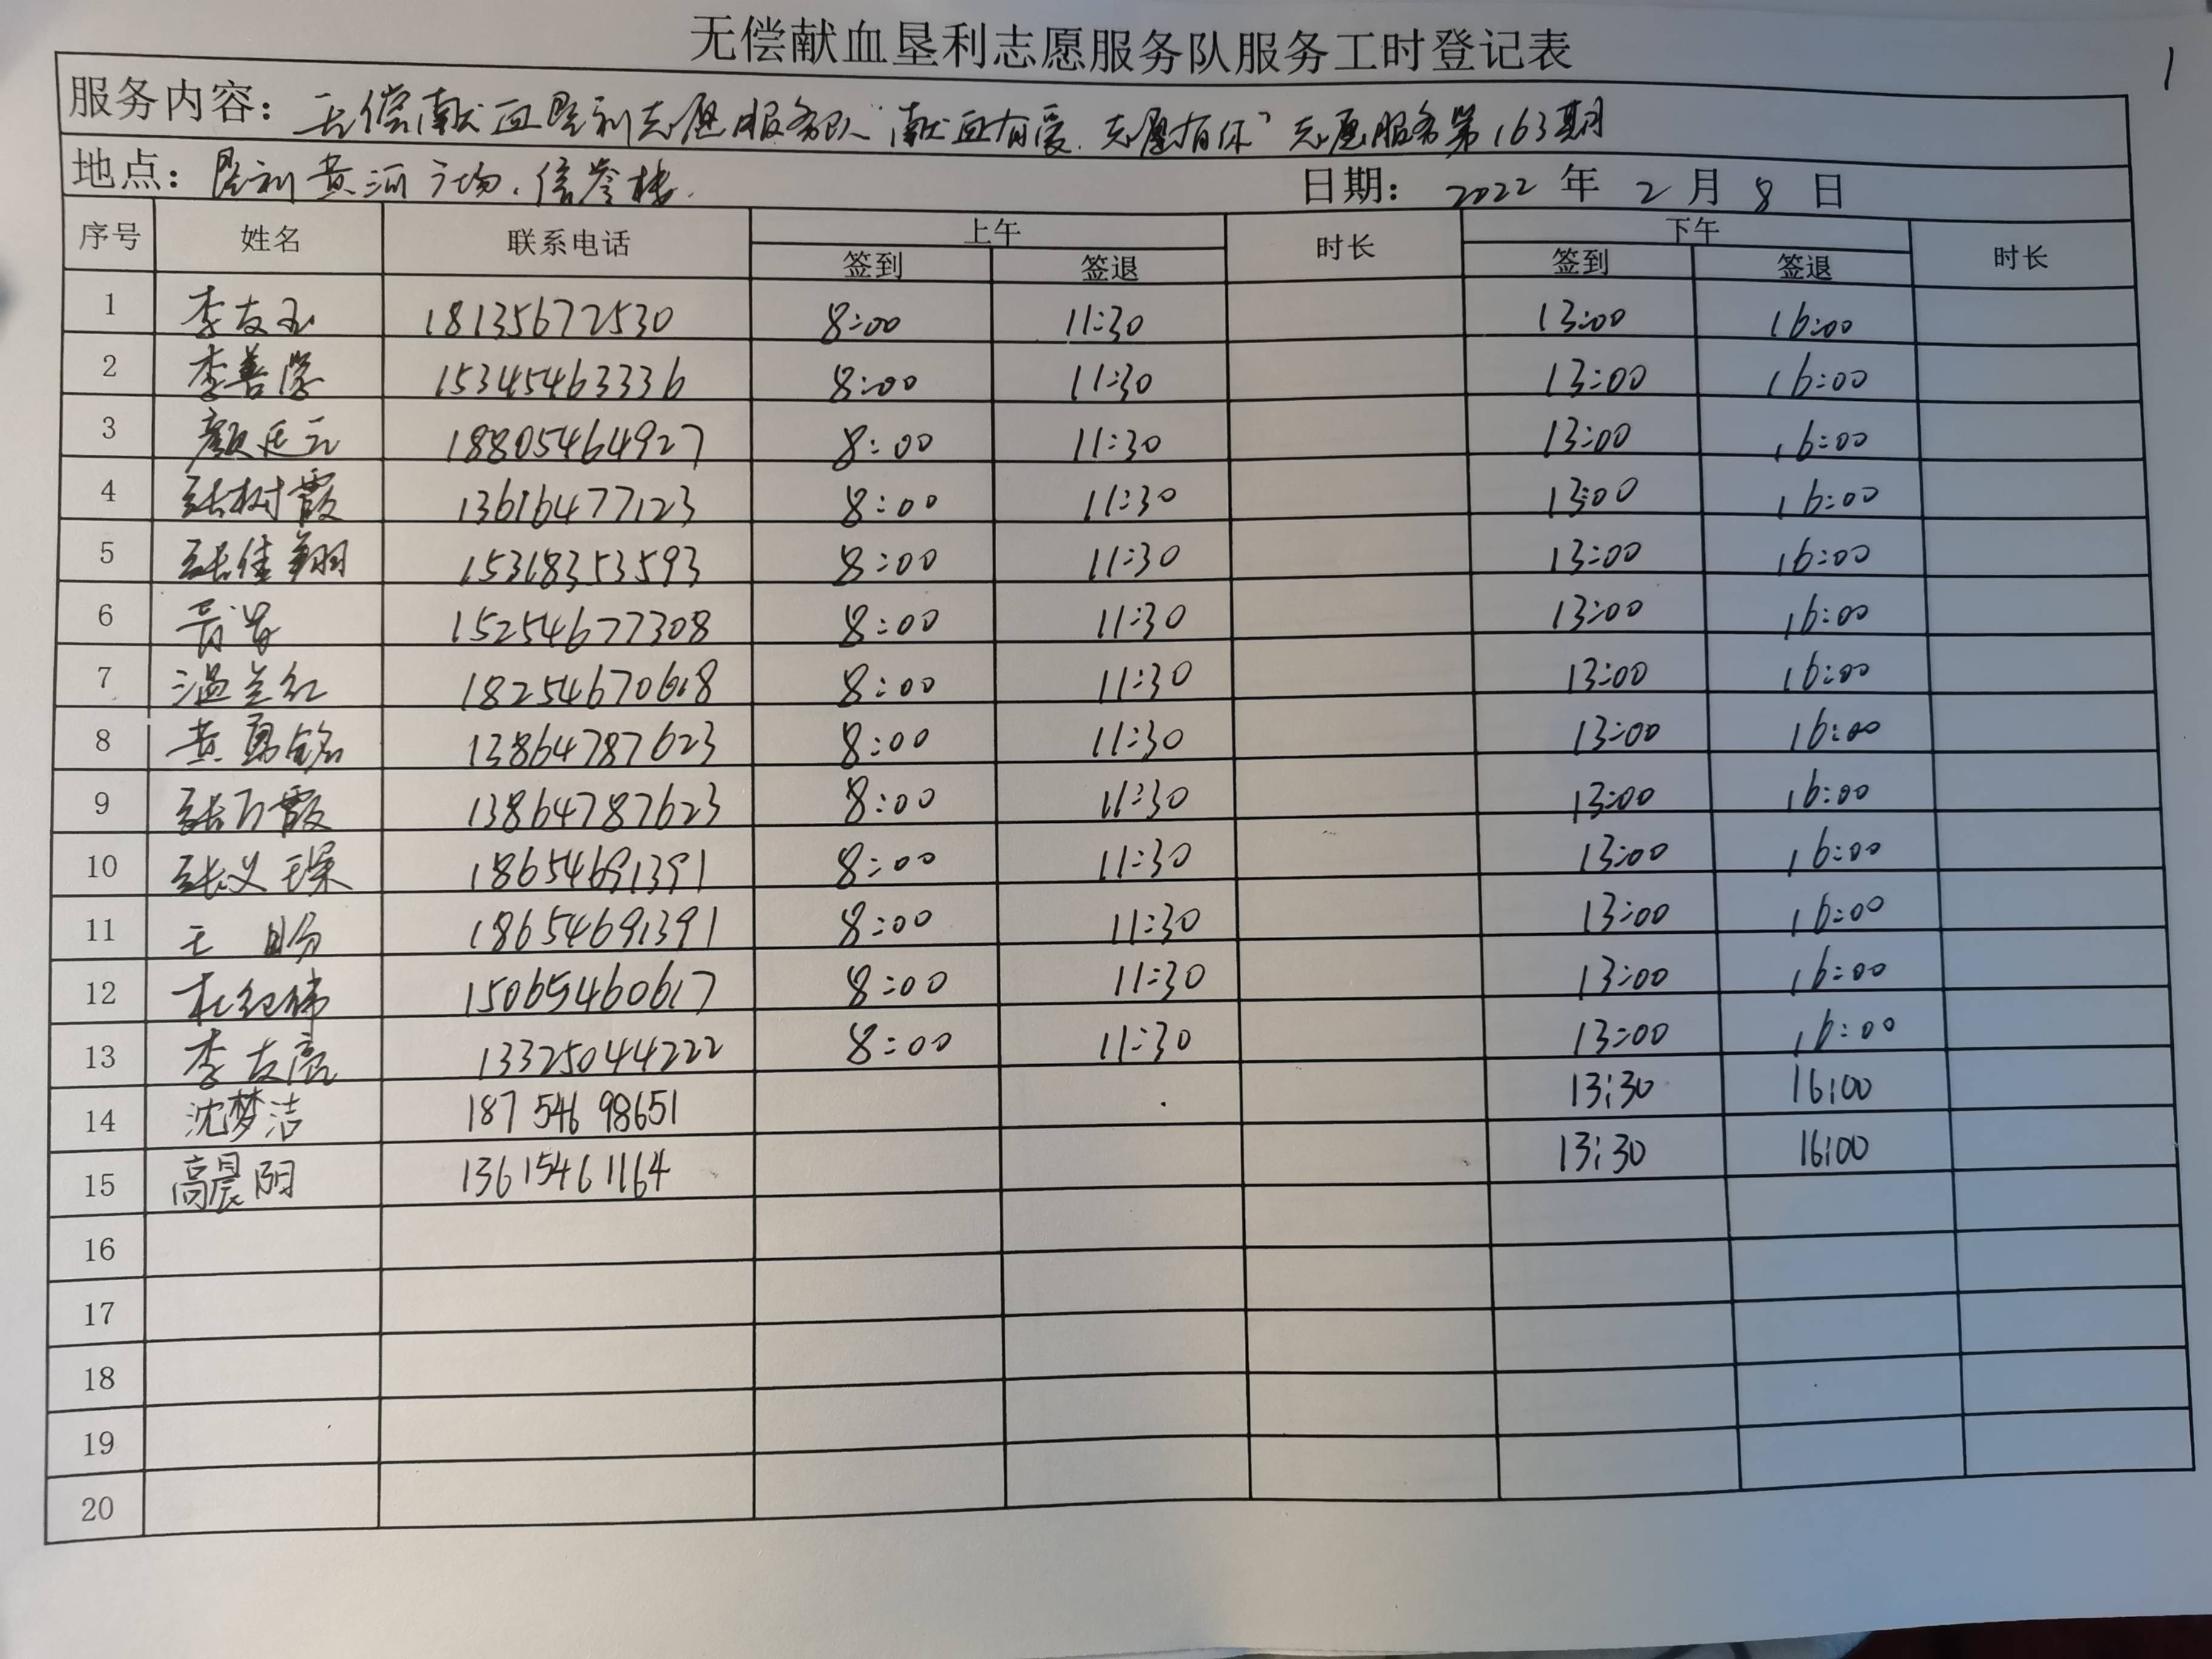 无偿献血垦利志愿服务队服务工时登记表
1
服务内容：无偿献血垦利志愿服务队“献血有爱.志愿有你”志愿服务第163期
地点：垦利黄河广场.信誉楼. 日期：2022年2月8日
序号 姓名 联系电话 上午 时长 下午 时长
签到 签退 签到 签退
1 李友玉 18135672530 8:00 11:30 13:00 16:00
2 李善学 15345463336 8:00 11:30 13:00 16:00
3 颜廷云 18805464927 8:00 11:30 13:00 16:00
4 张树霞 13616477123 8:00 11:30 13:00 16:00
5 张佳翔 15318353593 8:00 11:30 13:00 16:00
6 15254677308 8:00 11:30 13:00 16:00
7 温兰红 18254670618 8:00 11:30 13:00 16:00
8 黄勇铭 13864787623 8:00 11:30 13:00 16:00
9 张万霞 13864787623 8:00 11:30 13:00 16:00
10 张义琛 18654691391 8:00 11:30 13:00 16:00
11 王盼 18654691391 8:00 11:30 13:00 16:00
12 杜纪伟 15065460617 8:00 11:30 13:00 16:00
13 李友亮 13325044222 8:00 11:30 13:00 16:00
14 沈梦洁 187 546 98651 13:30 16:00
15 高晨阳 13615461164 13:30 16:00
16
17
18
19
20